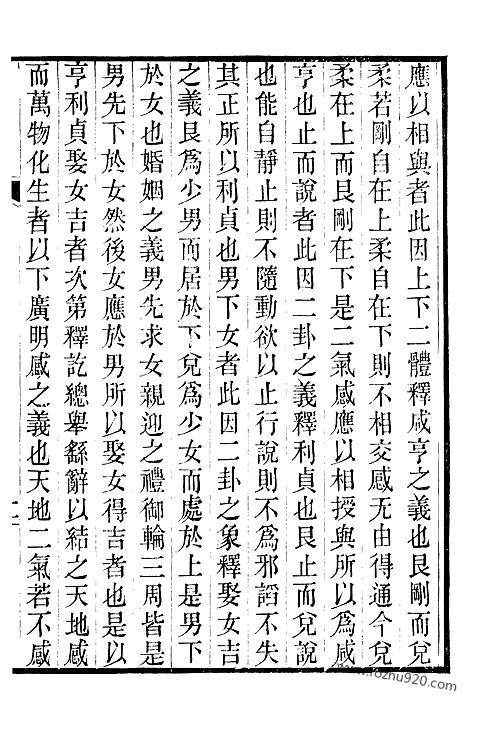 應以相與者此因上下二體釋咸亨之義也艮剛而兌
柔若剛自在上柔自在下則不相交感无由得通今兌
柔在上而艮剛在下是二氣感應以相授與所以爲咸
亨也止而說者此因二卦之義釋利貞也艮止而兌說
也能自靜止則不隨動欲以止行說則不爲邪謟不失
其正所以利貞也男下女者此因二卦之象釋娶女吉
之義艮爲少男而居於下兌爲少女而處於上是男下
於女也婚姻之義男先求女親迎之禮御輪三周皆是
男先下於女然後女應於男所以娶女得吉者也是以
亨利貞娶女吉者次第釋訖總舉繇辭以結之天地感
而萬物化生者以下廣明感之義也天地二氣若不感
www.rozhu920.com